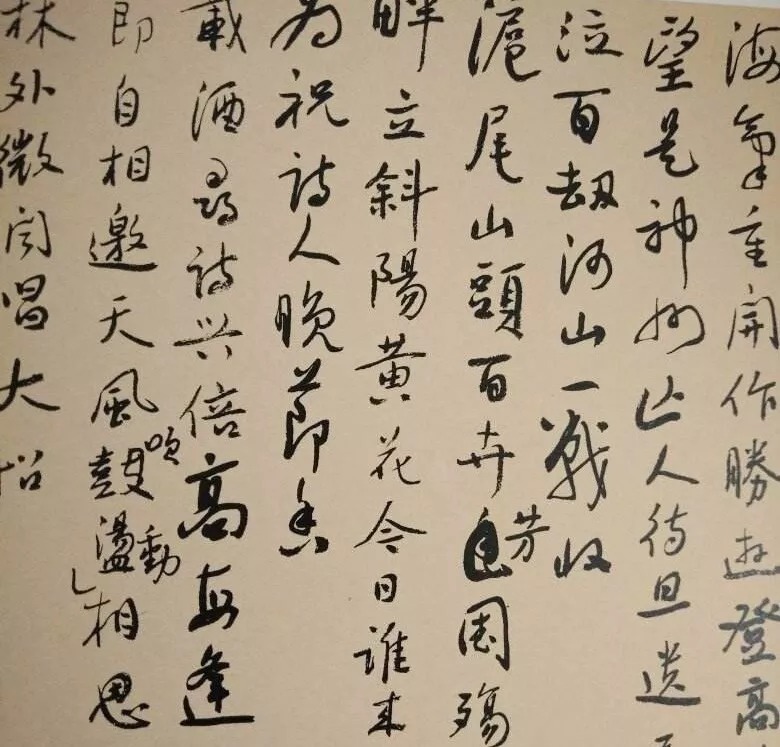 海氣重開作勝遊登高
望是神州山人待旦遺
泣百劫河山一戰收
滬尾山頭百卉芳國殤
畔立斜陽黃花今日誰来
為祝詩人晚節香
載酒尋詩兴倍高每逢
即自相邀天風鼓吹盪動相思
林外微闻唱大